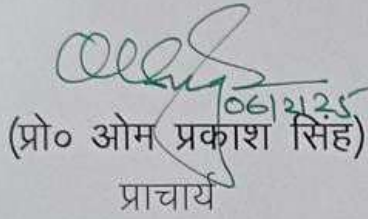 06/2/25
(प्रो० ओम प्रकाश सिंह)
प्राचार्य